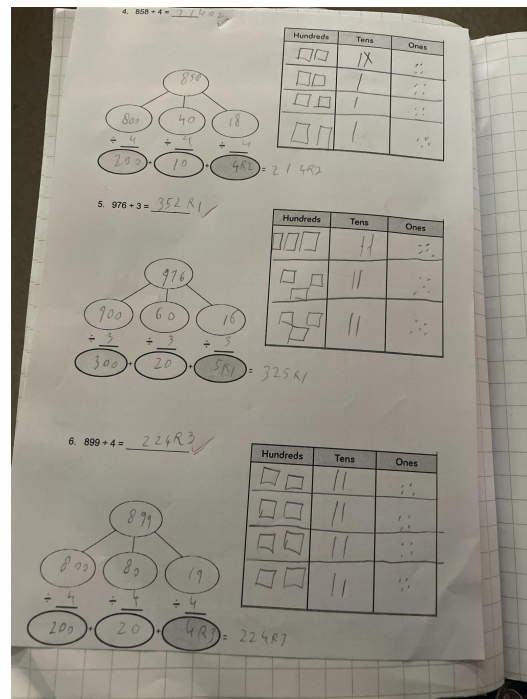 4. 858 ÷ 4 = 214R2
Hundreds Tens Ones
858
800 40 18
÷ 4 ÷ 4 ÷ 4
200 + 10 + 4R2 = 214R2
5. 976 ÷ 3 = 352R1
Hundreds Tens Ones
976
900 60 16
÷ 3 ÷ 3 ÷ 3
300 + 20 + 5R1 = 325R1
6. 899 ÷ 4 = 224R3
Hundreds Tens Ones
899
800 80 19
÷ 4 ÷ 4 ÷ 4
200 + 20 + 4R3 = 224R3